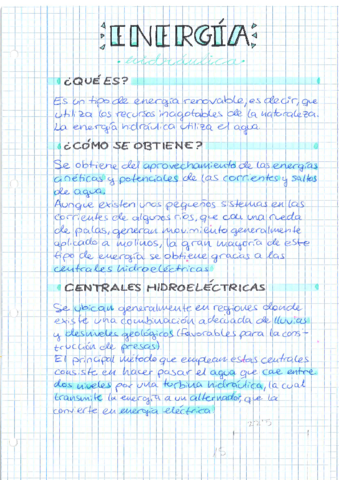 ENERGÍA
hidráulica
¿QUÉ ES?
Es un tipo de energía renovable, es decir, que
utiliza los recursos inagotables de la naturaleza.
La energía hidráulica utiliza el agua.
¿CÓMO SE OBTIENE?
Se obtiene del aprovechamiento de las energías
cinéticas y potenciales de las corrientes y saltos
de agua.
Aunque existen unos pequeños sistemas en las
corrientes de algunos ríos, que con una rueda
de palas, generan movimiento generalmente
aplicado a molinos, la gran mayoría de este
tipo de energía se obtiene gracias a las
centrales hidroeléctricas
CENTRALES HIDROELÉCTRICAS
Se ubican generalmente en regiones donde
existe una combinación adecuada de lluvias
y desniveles geológicos (favorables para la cons-
trucción de presas)
El principal método que emplean estas centrales
consiste en hacer pasar el agua que cae entre
dos niveles por una turbina hidráulica, la cual
transmite la energía a un alternador, que la
convierte en energía eléctrica